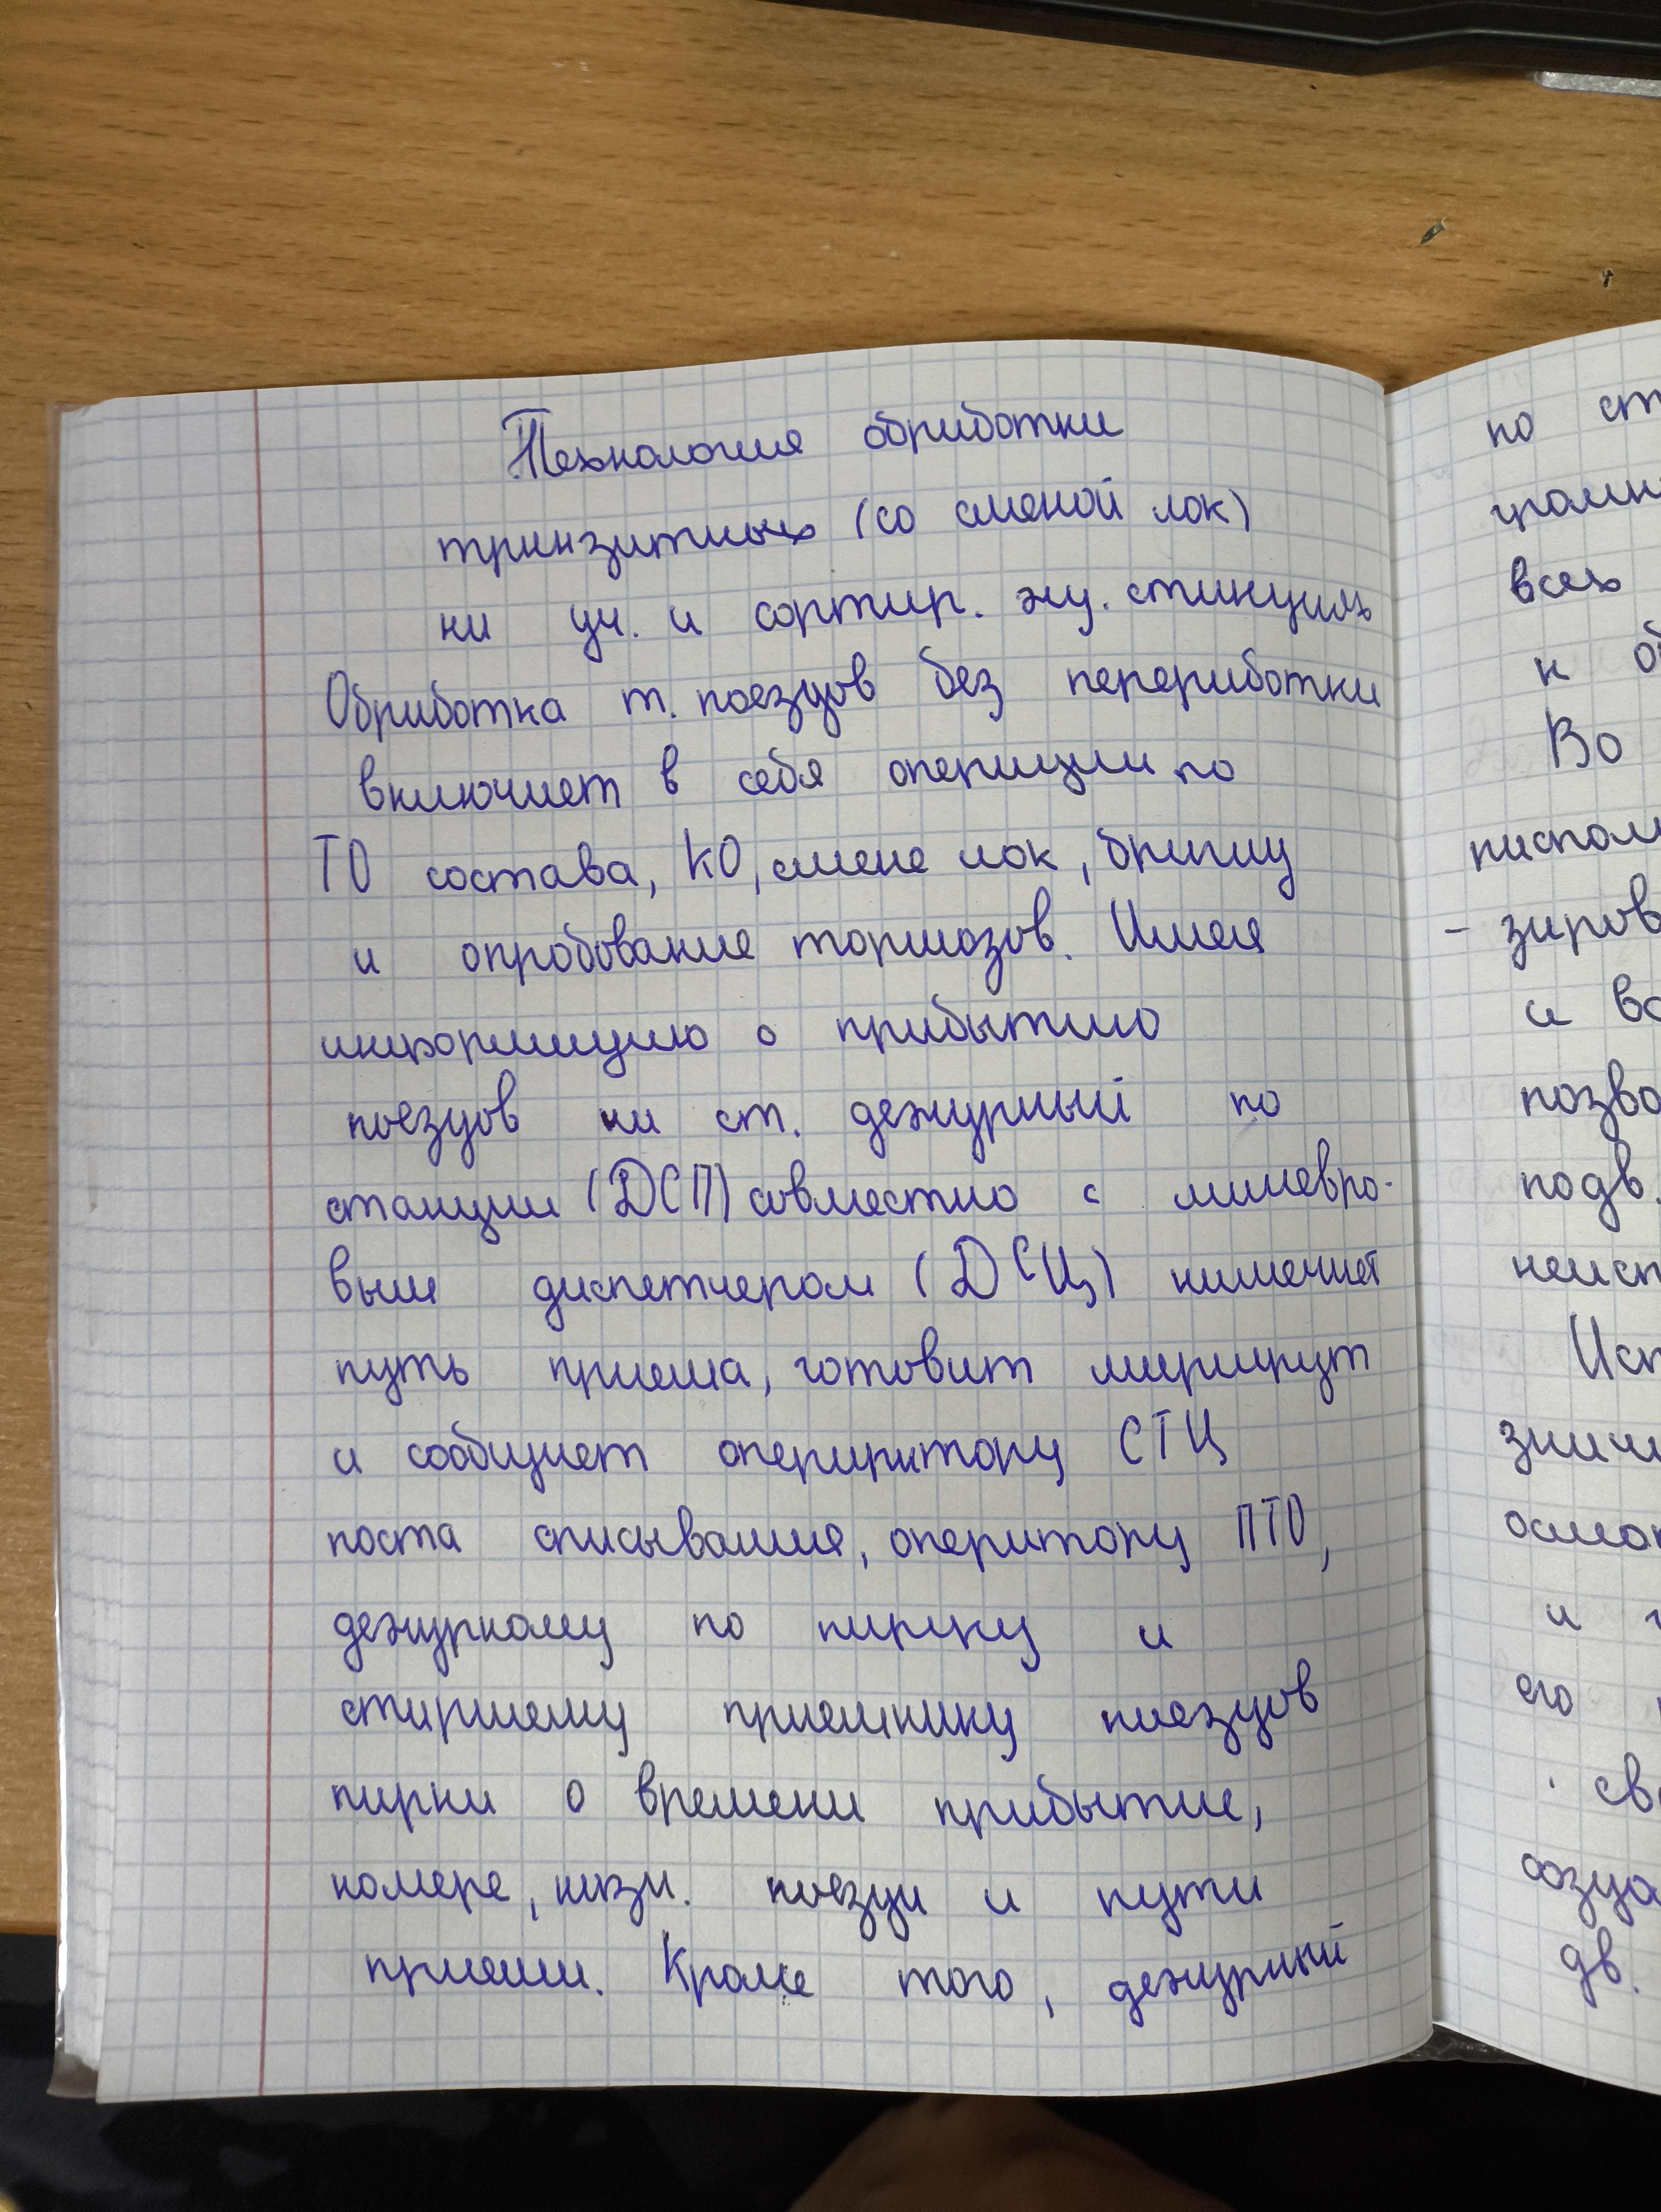 Технология обработки
транзитных (со сменой лок)
на уч. и сортир. жд. станциях
Обработка т. поездов без переработки
включает в себя операции по
ТО состава, КО, смене лок, бригад
и опробование тормозов. Имея
информацию о прибытию
поездов на ст. дежурный по
станции (ДСП) совместно с маневро-
вым диспетчером (ДСЦ) намечает
путь приема, готовит маршрут
и сообщает оператору СТЦ
поста списывания, оператору ПТО,
дежурному по парку и
старшему приемнику поездов
парка о времени прибытие,
номере, назн. поезда и пути
приема. Кроме того, дежурный
по
всех
к
Во
- зиров
и
подв.
и
его
дв.